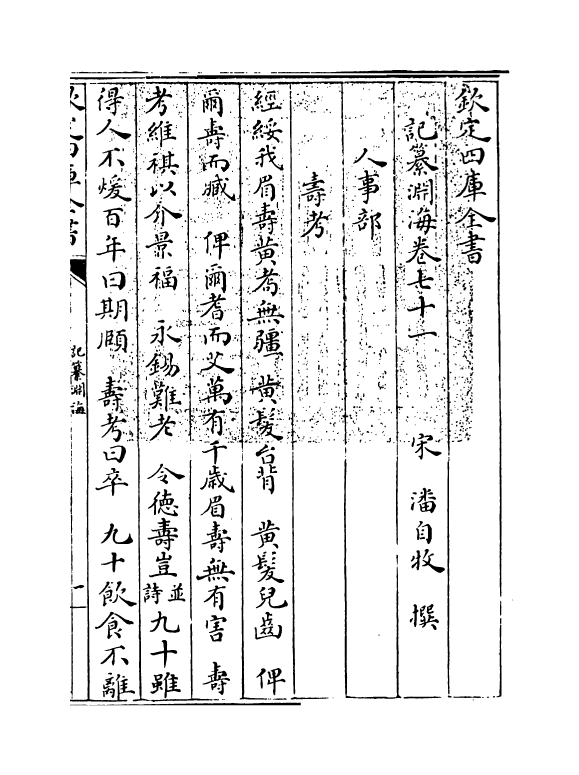 欽定四庫全書
記纂淵海卷七十一 宋 潘自牧 撰
人事部
壽考
經綏我眉壽黄耇無疆 黄髮台背 黄髮兒齒 俾
爾壽而臧 俾爾耆而艾萬有千歲眉壽無有害 壽
考維祺以介景福 永錫難老 令德壽豈並詩九十雖
得人不煖百年曰期頤 壽考曰卒 九十飲食不離
記纂淵海
一